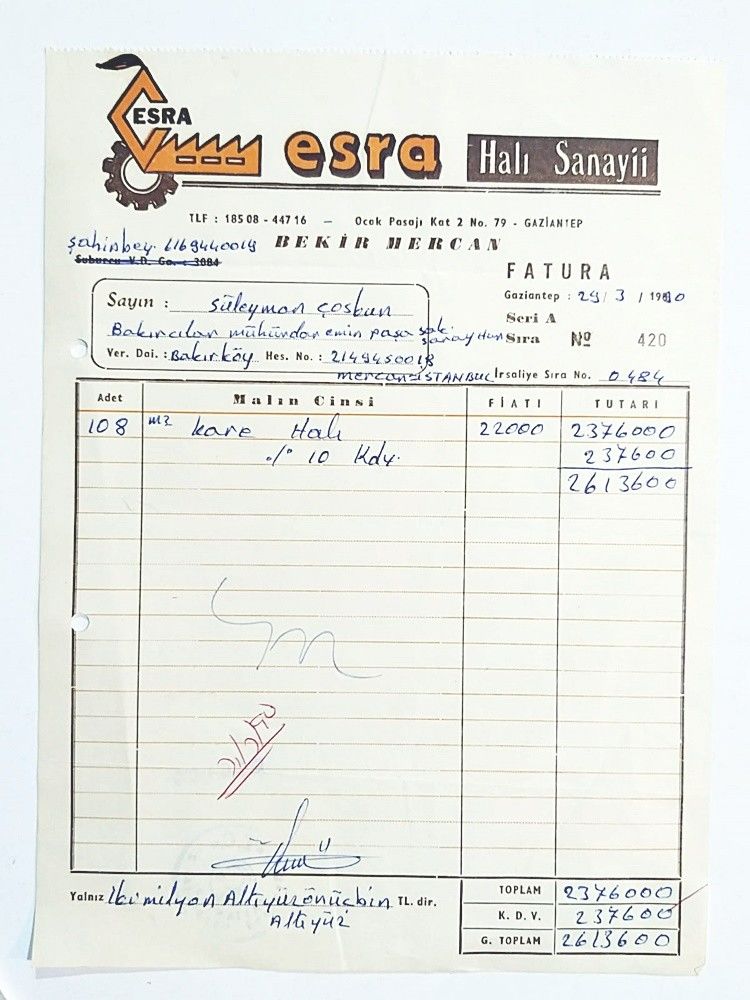 ESRA
esra Halı Sanayii
TLF : 185 08 - 447 16 – Ocak Pasajı Kat 2 No. 79 - GAZİANTEP
Şahinbey. 6169440019 BEKİR MERCAN
Suburcu V.D. Go. : 3084
FATURA
Gaziantep : 29 / 3 / 1990
Sayın : Süleyman Çoşkun
Seri A
Bakırcılar mühürdar emin paşa sok. Saray Han
Sıra No 420
Ver. Dai. : Bakırköy Hes. No. : 2149450018
mercan-İSTANBUL İrsaliye Sıra No. 0484
Adet Malın Cinsi FİATI TUTARI
108 m2 kare Halı 22000 2376000
./° 10 Kdv. 237600
2613600
Yalnız İkimilyon Altıyüzonüçbin TL. dir.
Altıyüz
TOPLAM 2376000
K. D. V. 237600
G. TOPLAM 2613600